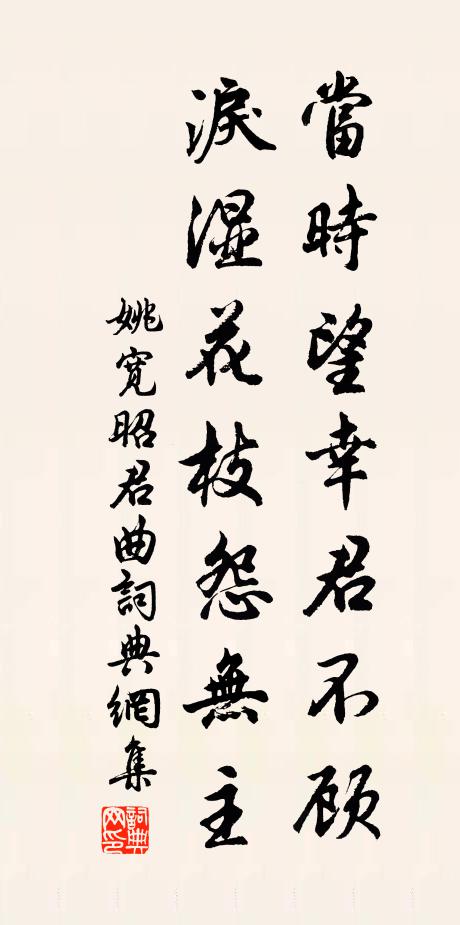 當時望幸君不顾
淚濕花枝怨無主
姚寬昭君曲詞典網集
詞典網印